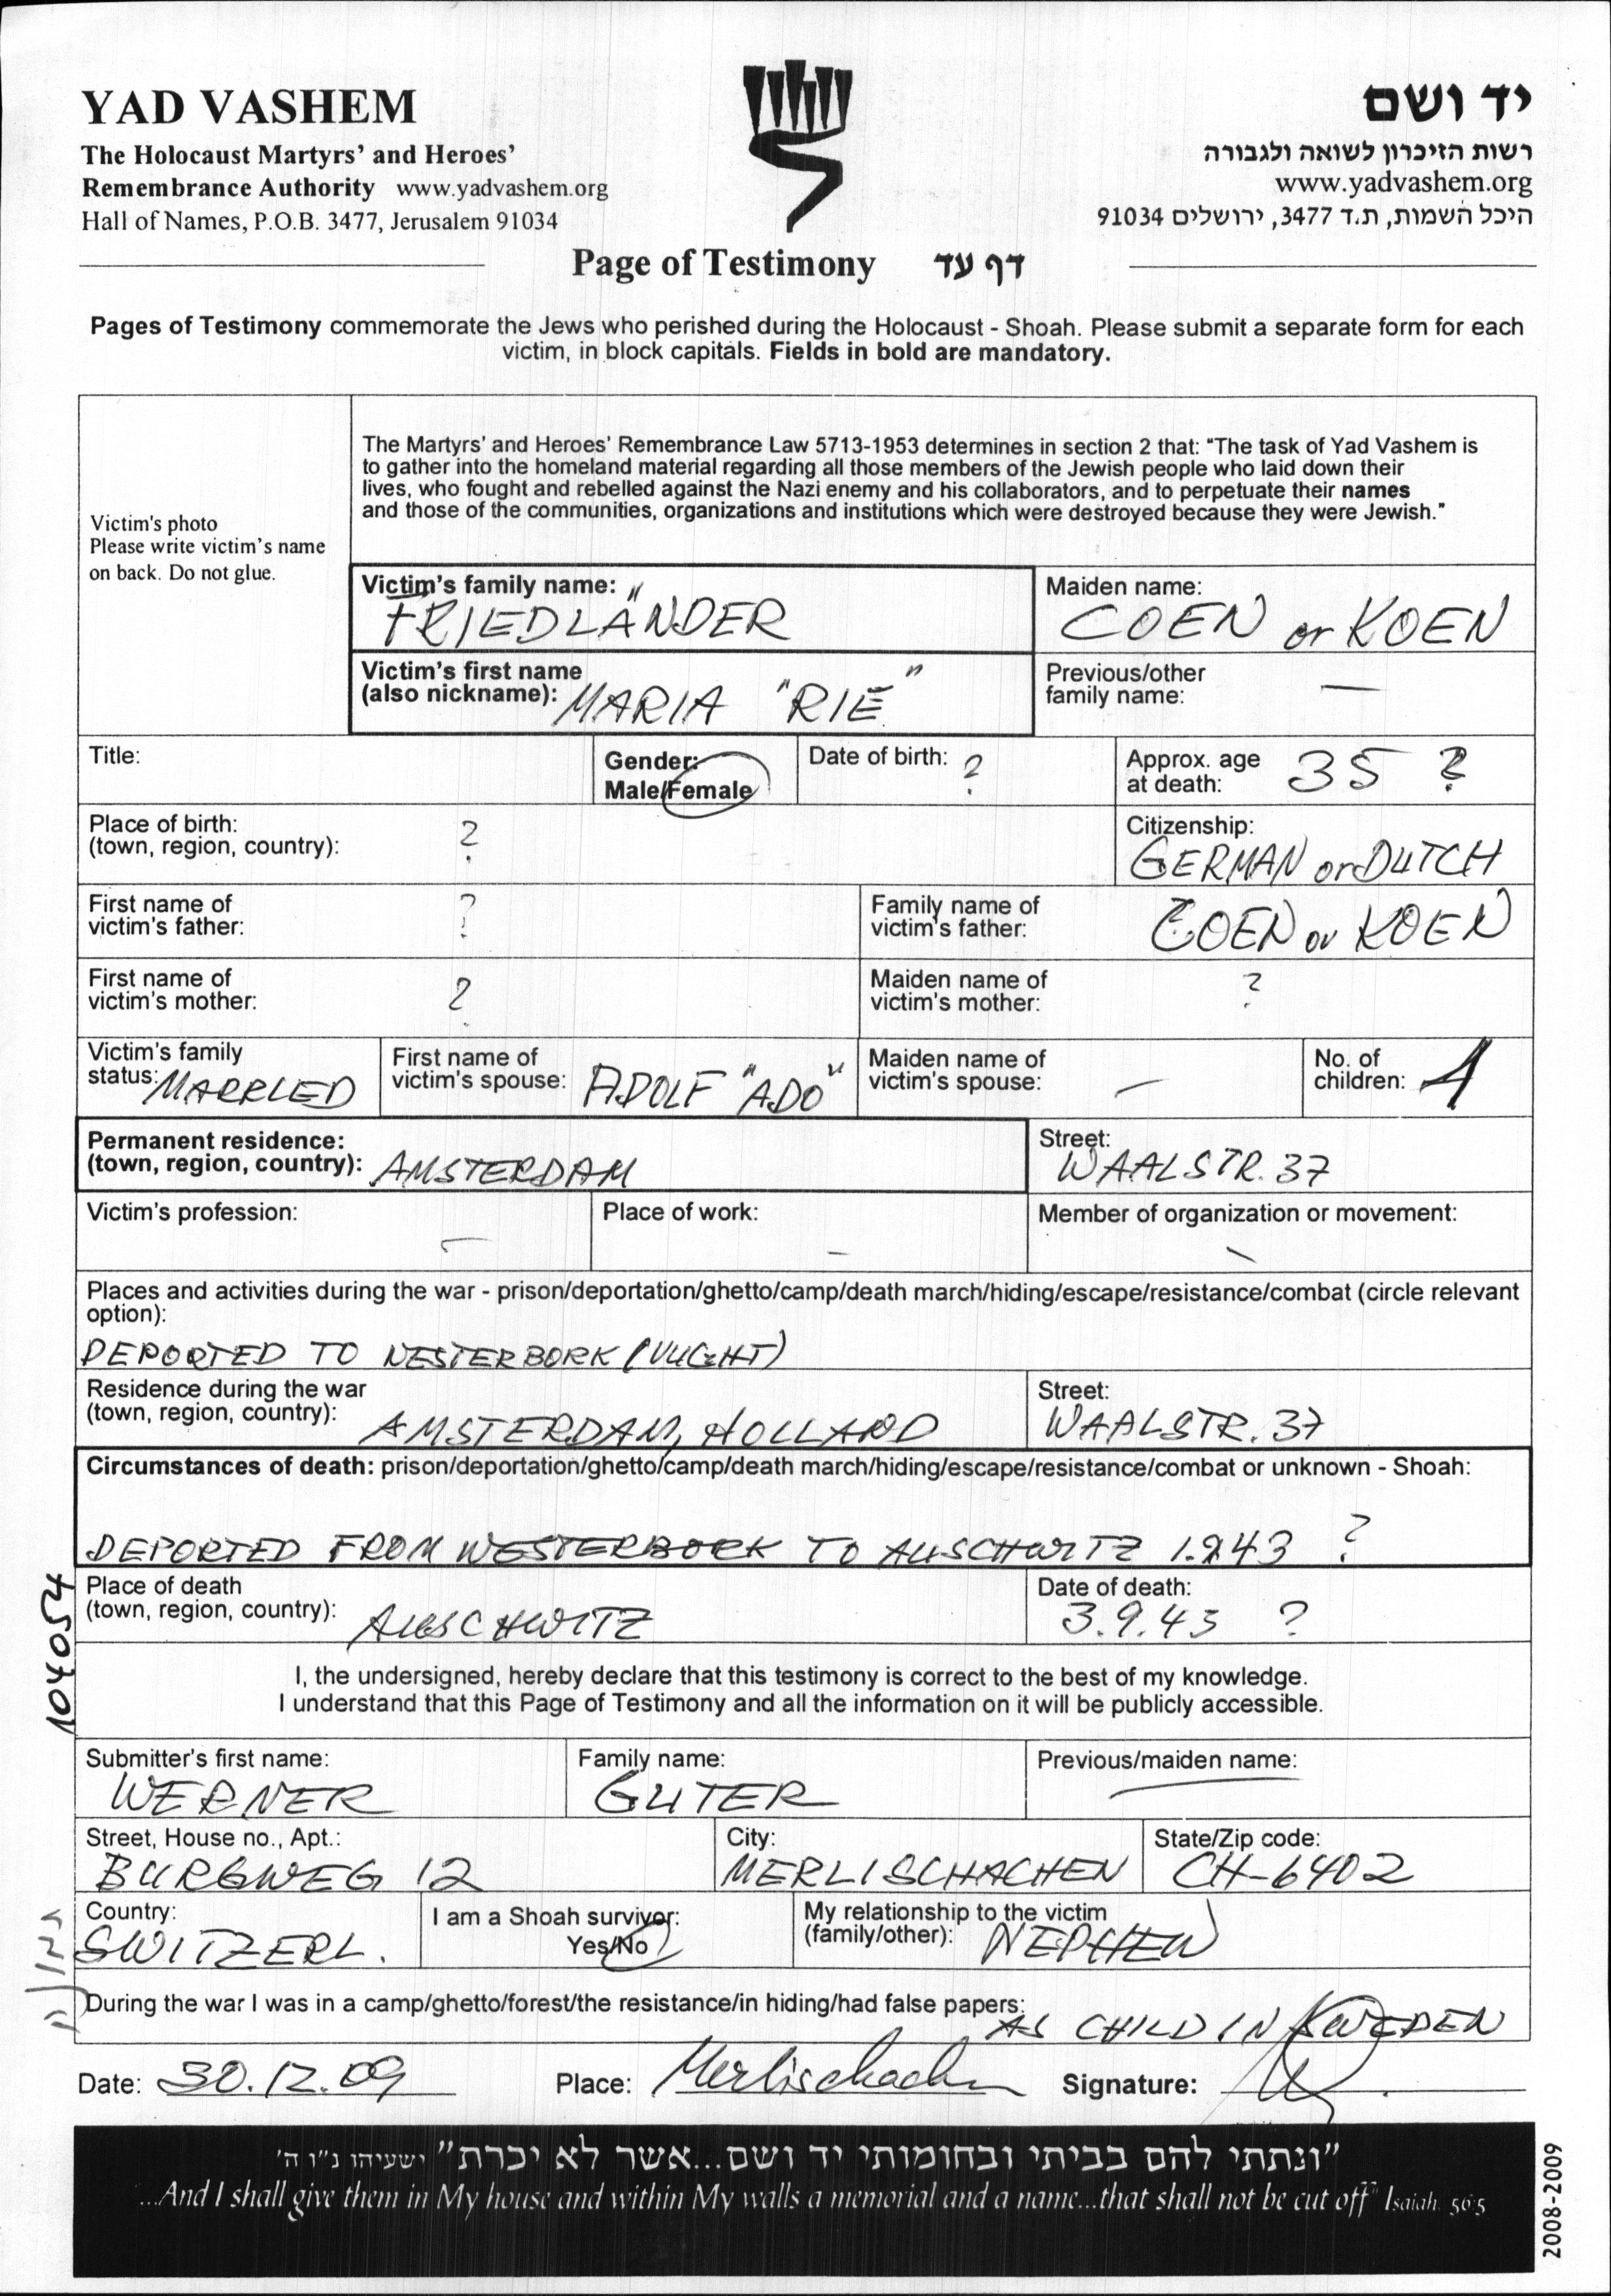 YAD VASHEM
The Holocaust Martyrs' and Heroes'
Remembrance Authority www.yadvashem.org
Hall of Names, P.O.B. 3477, Jerusalem 91034
יד ושם
רשות הזיכרון לשואה ולגבורה
www.yadvashem.org
היכל השמות, ת.ד 3477, ירושלים 91034
Page of Testimony דף עד
Pages of Testimony commemorate the Jews who perished during the Holocaust - Shoah. Please submit a separate form for each
victim, in block capitals. Fields in bold are mandatory.
Victim's photo
Please write victim's name
on back. Do not glue.
The Martyrs' and Heroes' Remembrance Law 5713-1953 determines in section 2 that: "The task of Yad Vashem is
to gather into the homeland material regarding all those members of the Jewish people who laid down their
lives, who fought and rebelled against the Nazi enemy and his collaborators, and to perpetuate their names
and those of the communities, organizations and institutions which were destroyed because they were Jewish."
Victim's family name: FRIEDLÄNDER
Maiden name: COEN or KOEN
Victim's first name
(also nickname): MARIA "RIE"
Previous/other
family name: —
Title:
Gender:
Male/Female
Date of birth: ?
Approx. age
at death: 35 ?
Place of birth:
(town, region, country): ?
Citizenship:
GERMAN or DUTCH
First name of
victim's father: ?
Family name of
victim's father: COEN or KOEN
First name of
victim's mother: ?
Maiden name of
victim's mother: ?
Victim's family
status: MARRIED
First name of
victim's spouse: ADOLF "ADO"
Maiden name of
victim's spouse: —
No. of
children: 1
Permanent residence:
(town, region, country): AMSTERDAM
Street:
WAALSTR. 37
Victim's profession: —
Place of work: —
Member of organization or movement: —
Places and activities during the war - prison/deportation/ghetto/camp/death march/hiding/escape/resistance/combat (circle relevant
option):
DEPORTED TO WESTERBORK (VUGHT)
Residence during the war
(town, region, country): AMSTERDAM, HOLLAND
Street:
WAALSTR. 37
Circumstances of death: prison/deportation/ghetto/camp/death march/hiding/escape/resistance/combat or unknown - Shoah:
DEPORTED FROM WESTERBORK TO AUSCHWITZ 1943 ?
Place of death
(town, region, country): AUSCHWITZ
Date of death:
3.9.43 ?
I, the undersigned, hereby declare that this testimony is correct to the best of my knowledge.
I understand that this Page of Testimony and all the information on it will be publicly accessible.
Submitter's first name:
WERNER
Family name:
GUTER
Previous/maiden name: —
Street, House no., Apt.:
BURGWEG 12
City:
MERLISCHACHEN
State/Zip code:
CH-6402
Country:
SWITZERL.
I am a Shoah survivor:
Yes/No
My relationship to the victim
(family/other): NEPHEW
During the war I was in a camp/ghetto/forest/the resistance/in hiding/had false papers:
AS CHILD IN SWEDEN
Date: 30.12.09
Place: Merlischachen
Signature:
"ונתתי להם בביתי ובחומותי יד ושם...אשר לא יכרת" ישעיהו נ"ו ה'
...And I shall give them in My house and within My walls a memorial and a name...that shall not be cut off" Isaiah 56:5
2008-2009